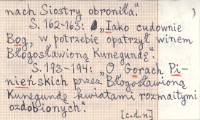 nach Siostry obroniła."
S. 162-163: "Jako cudownie
Bog, w potrzebie opatrzył winem
Błogosławioną Kunegundę."
S. 193-194: "O Gorach Pi-
nieńskich przez Błogosławioną
Kunegundę kwiatami rozmaitymi
ozdobionych."
[c.d.n.]